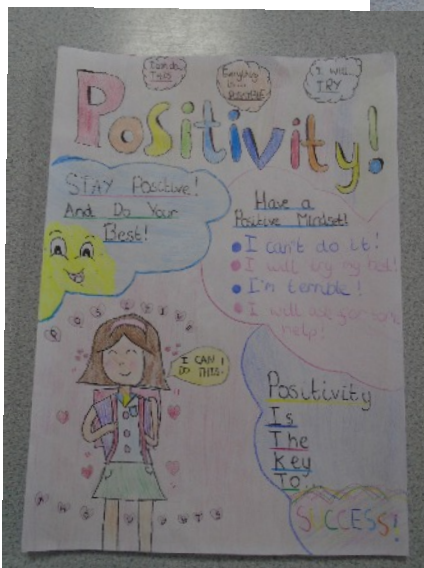 I can do
THIS
Everything
is...
POSSIBLE
I WILL...
TRY
Positivity!
STAY Positive!
And Do Your
Best!
Have a
Positive Mindset!
I can't do it!
I will try my best!
I'm terrible!
I will ask for some
help!
POSITIVE
I CAN
DO THIS.
THOUGHTS
Positivity
Is
The
Key
To...
SUCCESS!